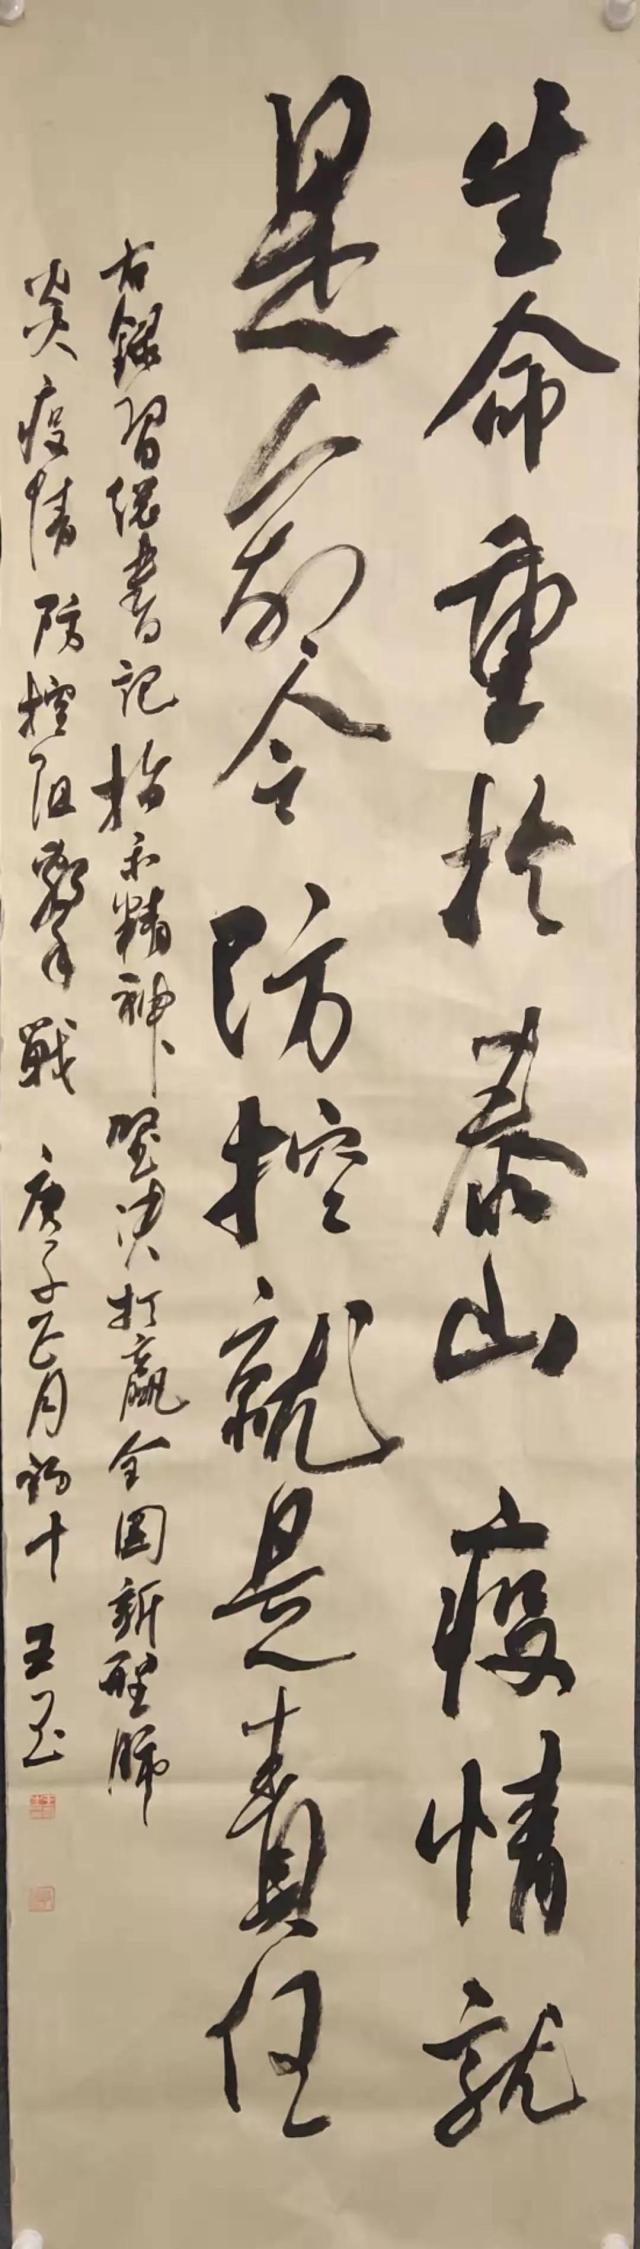 生命重於泰山疫情就
是命令防控就是責任
右錄習總書記指示精神堅決打贏全國新型肺
炎疫情防控阻擊戰 庚子正月初十 王